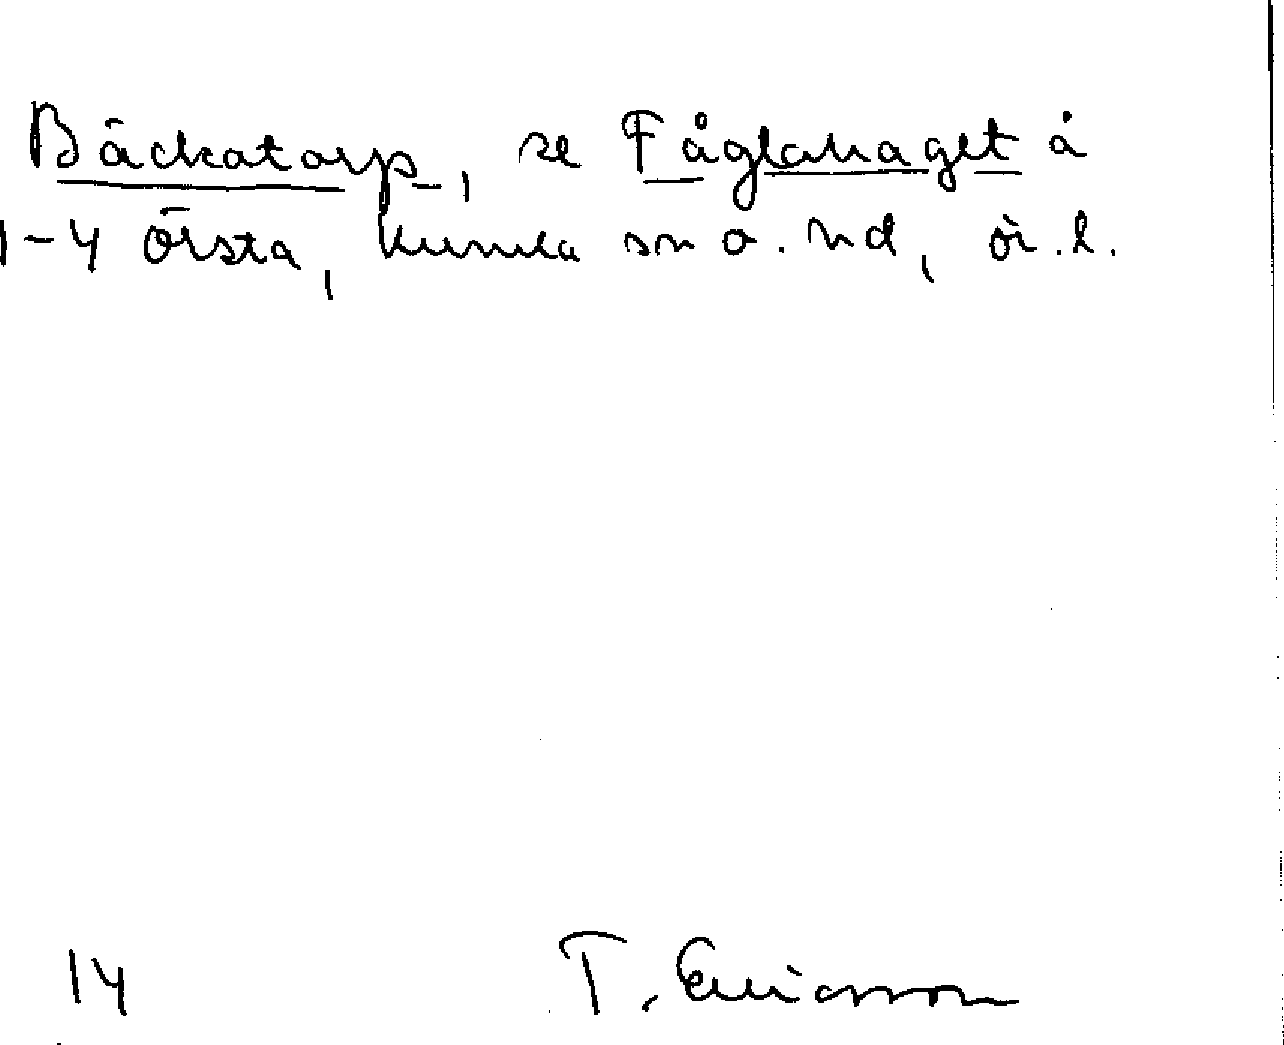 Bäckatorp, se Fåglahaget å
1-4 Örsta, Kumla sn o. hd, Ör. l.
14 T. Ericsson